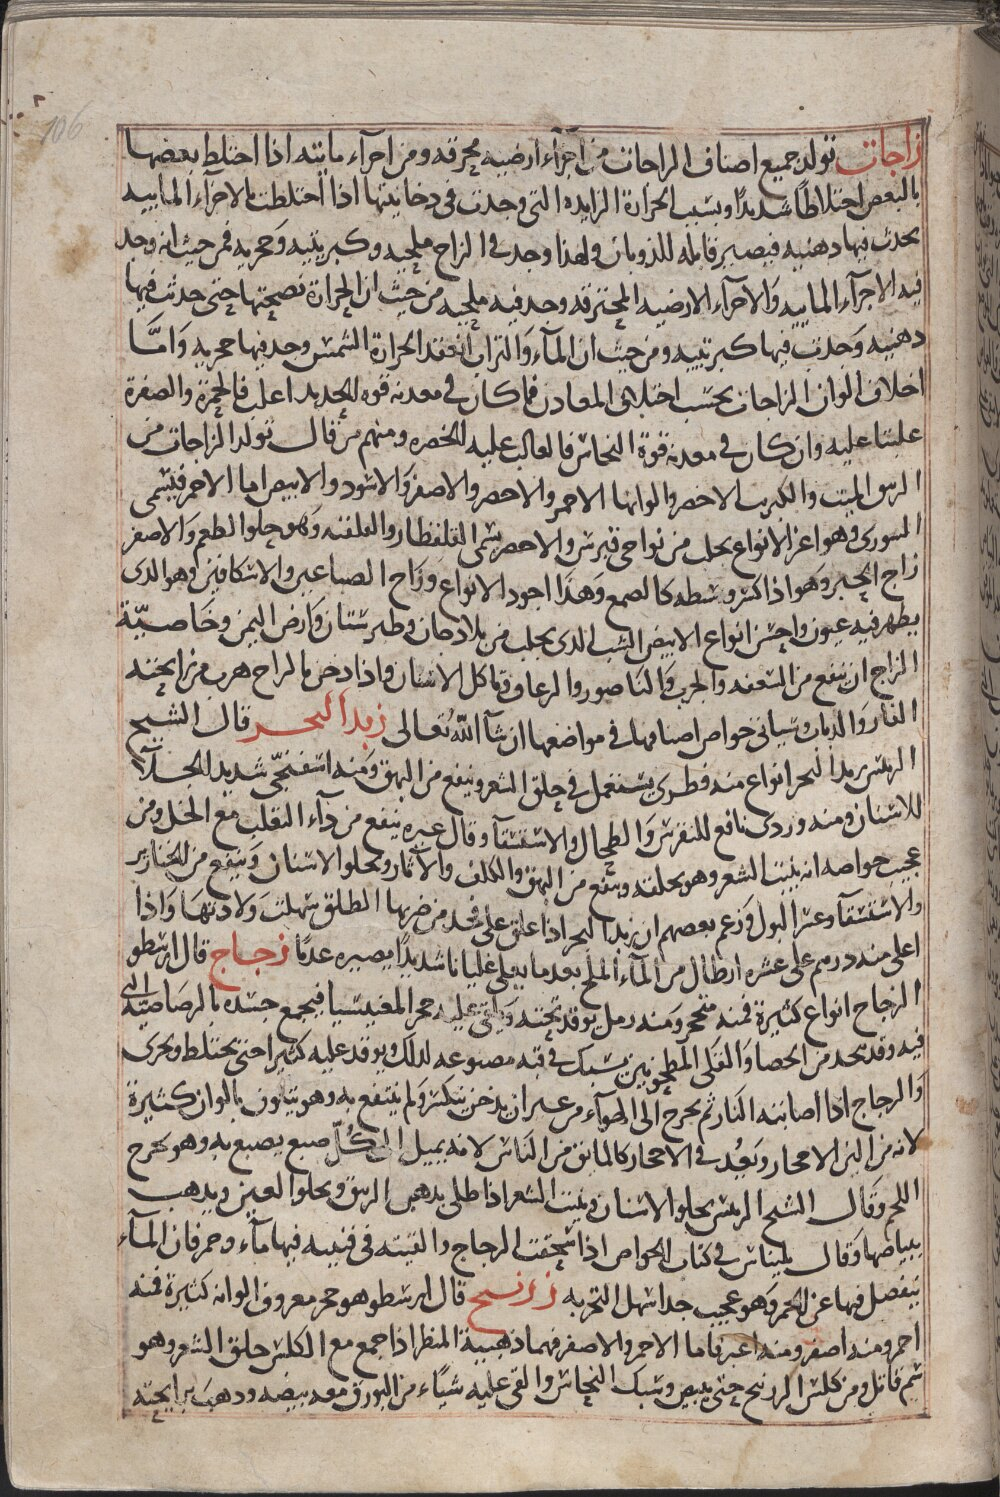 106
زاجات تولد جميع اصناف الزاجات من اجزآء ارضيه محرقه ومن اجزآء مائيه اذا اختلط بعضها
بالبعض اختلاطا شديدا وبسبب الحرارة الزايده التي وجدت في دخانيتها اذا اختلطت بالاجزآء المائيه
يحدث فيها دهنيه فيصير قابله للذوبان ولهذا وجد في الزاج ملحيه وكبريتيه وحجريه فمن حيث انه وجد
فيه الاجزآء المائيه والاجزآء الارضيه المحترقه وجد فيه ملحيه من حيث ان الحرارة نضجتها حتى حدث فيها
دهنيه وحدث فيها كبريتيه ومن حيث ان المآء والتراب انعقد الحرارة الشمس وجد فيها حجريه وامّا
اختلاف الوان الزاجات بحسب اختلاف المعادن فما كان في معدنه قوه الحديد اغلب فالحمرة والصفرة
غلبتا عليه وان كان في معدنه قوة النحاس فالغالب عليه الخضره ومنهم من قال تولد الزاجات من
الزيبق الميت والكبريت الاخضر والوانها الاحمر والاخضر والاصفر والاسود والابيض اما الاحمر فيسمى
السوري وهو اعز الانواع يجلب من نواحي قبرس والاخضر يسمى القلقطار والقلقنه وهو حلوا الطعم والاصفر
زاج الحبر وهو اذا كسر وسطه كالصمغ وهذا اجود الانواع وزاج الصباغين والاسكافين وهو الذي
يظهر فيه عيون واحسن انواع الابيض الشب الذي يجلب من بلاد جان وطبرستان وارض اليمن وخاصيّة
الزاج ان ينفع من السعفه والجرب والناصور والرعاف وتاكل الاسنان واذا دخن بالزاج هرب من رايحته
الفار والذباب وسياتى خواص اصنافها في مواضعها ان شآ الله تعالى زبد البحر قال الشيخ
الرييس زبد البحر انواع منه فطري يستعمل في حلق الشعر وينفع من البهق ومنه اسفنجي شديد الجلآ
للاسنان ومنه وردى نافع للنقرس والطحال والاستسقآ وقال غيره ينفع من دآء الثعلب مع الخل ومن
عجيب خواصه انه ينبت الشعر وهو يحلقه وينفع من البهق والكلف والآثار ويجلوا الاسنان وينفع من الخنازير
والاستسقآ وعسر البول وزعم بعضهم ان زبد البحر اذا علق على فخد من ضربها الطلق سهلت ولادتها واذا
اغلى منه درهم على عشره ارطال من المآء الملح بعد ما يغلى غليانا شديدا يصيره عذبا زجاج قال ارسطو
الزجاج انواع كثيرة فمنه متحجر ومنه رمل يوقد تحته ويلقى عليه حجر المغنيسيا فيجمع جسده بالرصاصية التي
فيه وقد يتخذ من الحصا والقلى المطحونين يسبك في قبه مصنوعه لذلك ويوقد عليه كثيرا حتى يختلط ويجرى
والزجاج اذا اصابته النار ثم يخرج الى الهوآء من غير ان يدخن تكسر ولم ينتفع به وهو يتلون بالوان كثيرة
لانه من الين الاحجار ويعد في الاحجار كالمائق من الناس لانه يميل الى كلّ صبغ يصبغ به وهو يخرج
اللحم وقال الشيخ الرييس يجلوا الاسنان وينبت الشعر اذا طلى بدهن الزيبق ويجلوا العين ويذهب
ببياضها وقال بليناس في كتاب الخواص اذا سحقت الزجاج والقيته في قنينه فيها مآء وخمر فان المآء
ينفصل فيها عن الخمر وهو عجيب جدا سهل التجربه زرنيخ قال ارسطو هو حجر معروف الوانه كثيرة فمنه
احمر ومنه اصفر ومنه اغبر فاما الاحمر والاصفر فهما ذهبية المنظر اذا جمع مع الكلس حلق الشعر وهو
سم قاتل ومن كلس الزرنيخ حتى يبيض وسبك النحاس والقى عليه شيأ من البورق معه بيضه ودهب برايحته